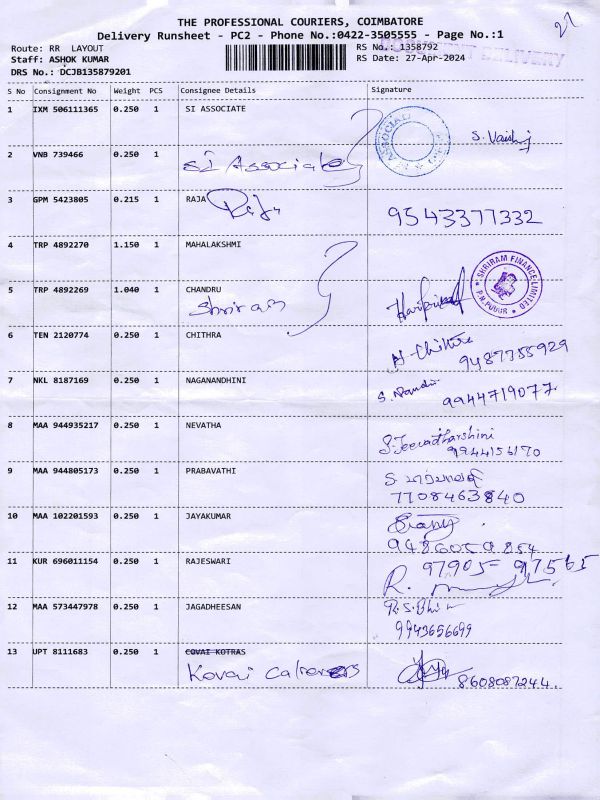 THE PROFESSIONAL COURIERS, COIMBATORE
Delivery Runsheet - PC2 - Phone No.:0422-3505555 - Page No.:1
Route: RR LAYOUT
Staff: ASHOK KUMAR
DRS No.: DCJB135879201
RS No.: 1358792
RS Date: 27-Apr-2024
DELIVERY
S No Consignment No Weight PCS Consignee Details Signature
1 IXM 506111365 0.250 1 SI ASSOCIATE S. Vaish
2 VNB 739466 0.250 1 SI Associate
3 GPM 5423805 0.215 1 RAJA Raja 9543377332
4 TRP 4892270 1.150 1 MAHALAKSHMI
SHRIRAM FINANCE LIMITED P.N.PUDUR
5 TRP 4892269 1.040 1 CHANDRU
Shriram
6 TEN 2120774 0.250 1 CHITHRA N. Chithra
9487755929
7 NKL 8187169 0.250 1 NAGANANDHINI S. Nandi
9944719077
8 MAA 944935217 0.250 1 NEVATHA
S. Jeevadharshini
9944156170
9 MAA 944805173 0.250 1 PRABAVATHI
7708463840
10 MAA 102201593 0.250 1 JAYAKUMAR
9486059854
11 KUR 696011154 0.250 1 RAJESWARI 97905 97565
R.
12 MAA 573447978 0.250 1 JAGADHEESAN
9943656699
13 UPT 8111683 0.250 1 COVAI KOTRAS
Kovai
8608087244.